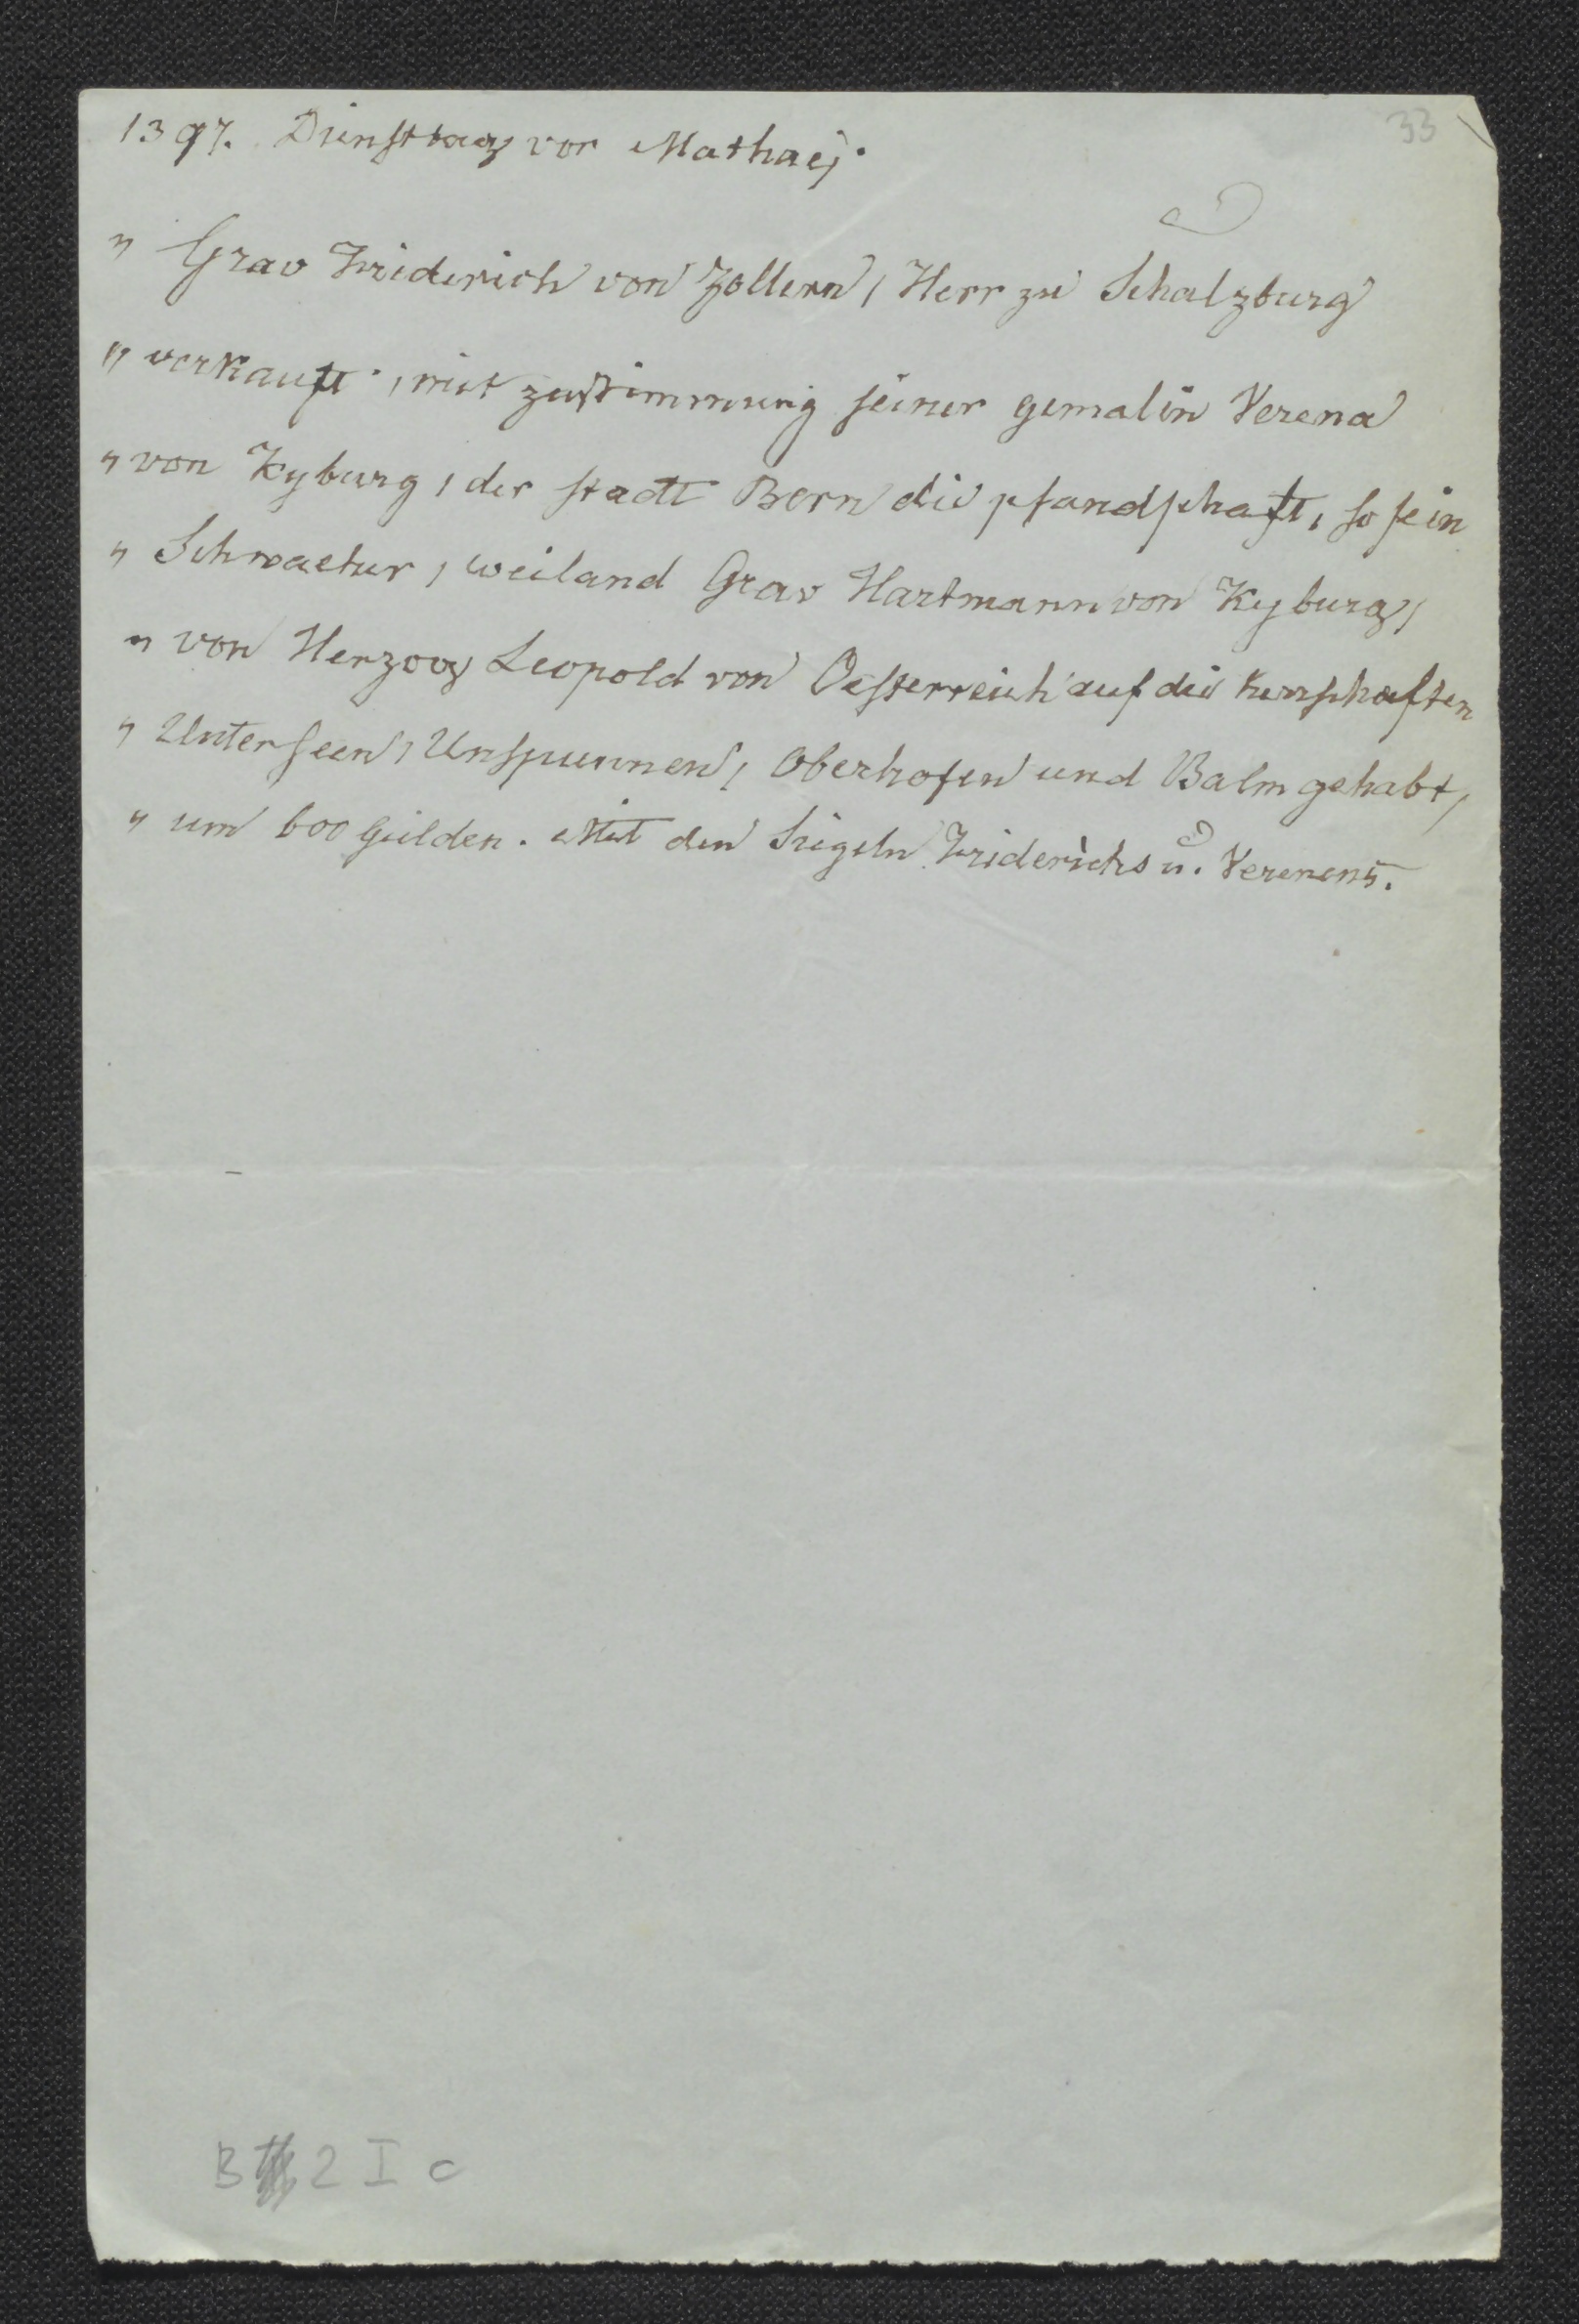 33
1397. Diensttag vor Mathaej.
" Grav Friderich von Zollern, Herr zu Schalzburg
" verkauft, mit zustimmung seiner gemalin Verena
" von Kyburg, der stadt Bern die pfandschaft, so sein
" Schwaeher, weiland Grav Hartmann von Kyburg,
" von Herzog Leopold von Oesterreich auf die herrschaften
" Unterseen, Unspunnen, Oberhofen und Balm gehabt,
" um 600 Gulden. Mit den Sigeln Friderichs u. Verenens.
B 2 I c